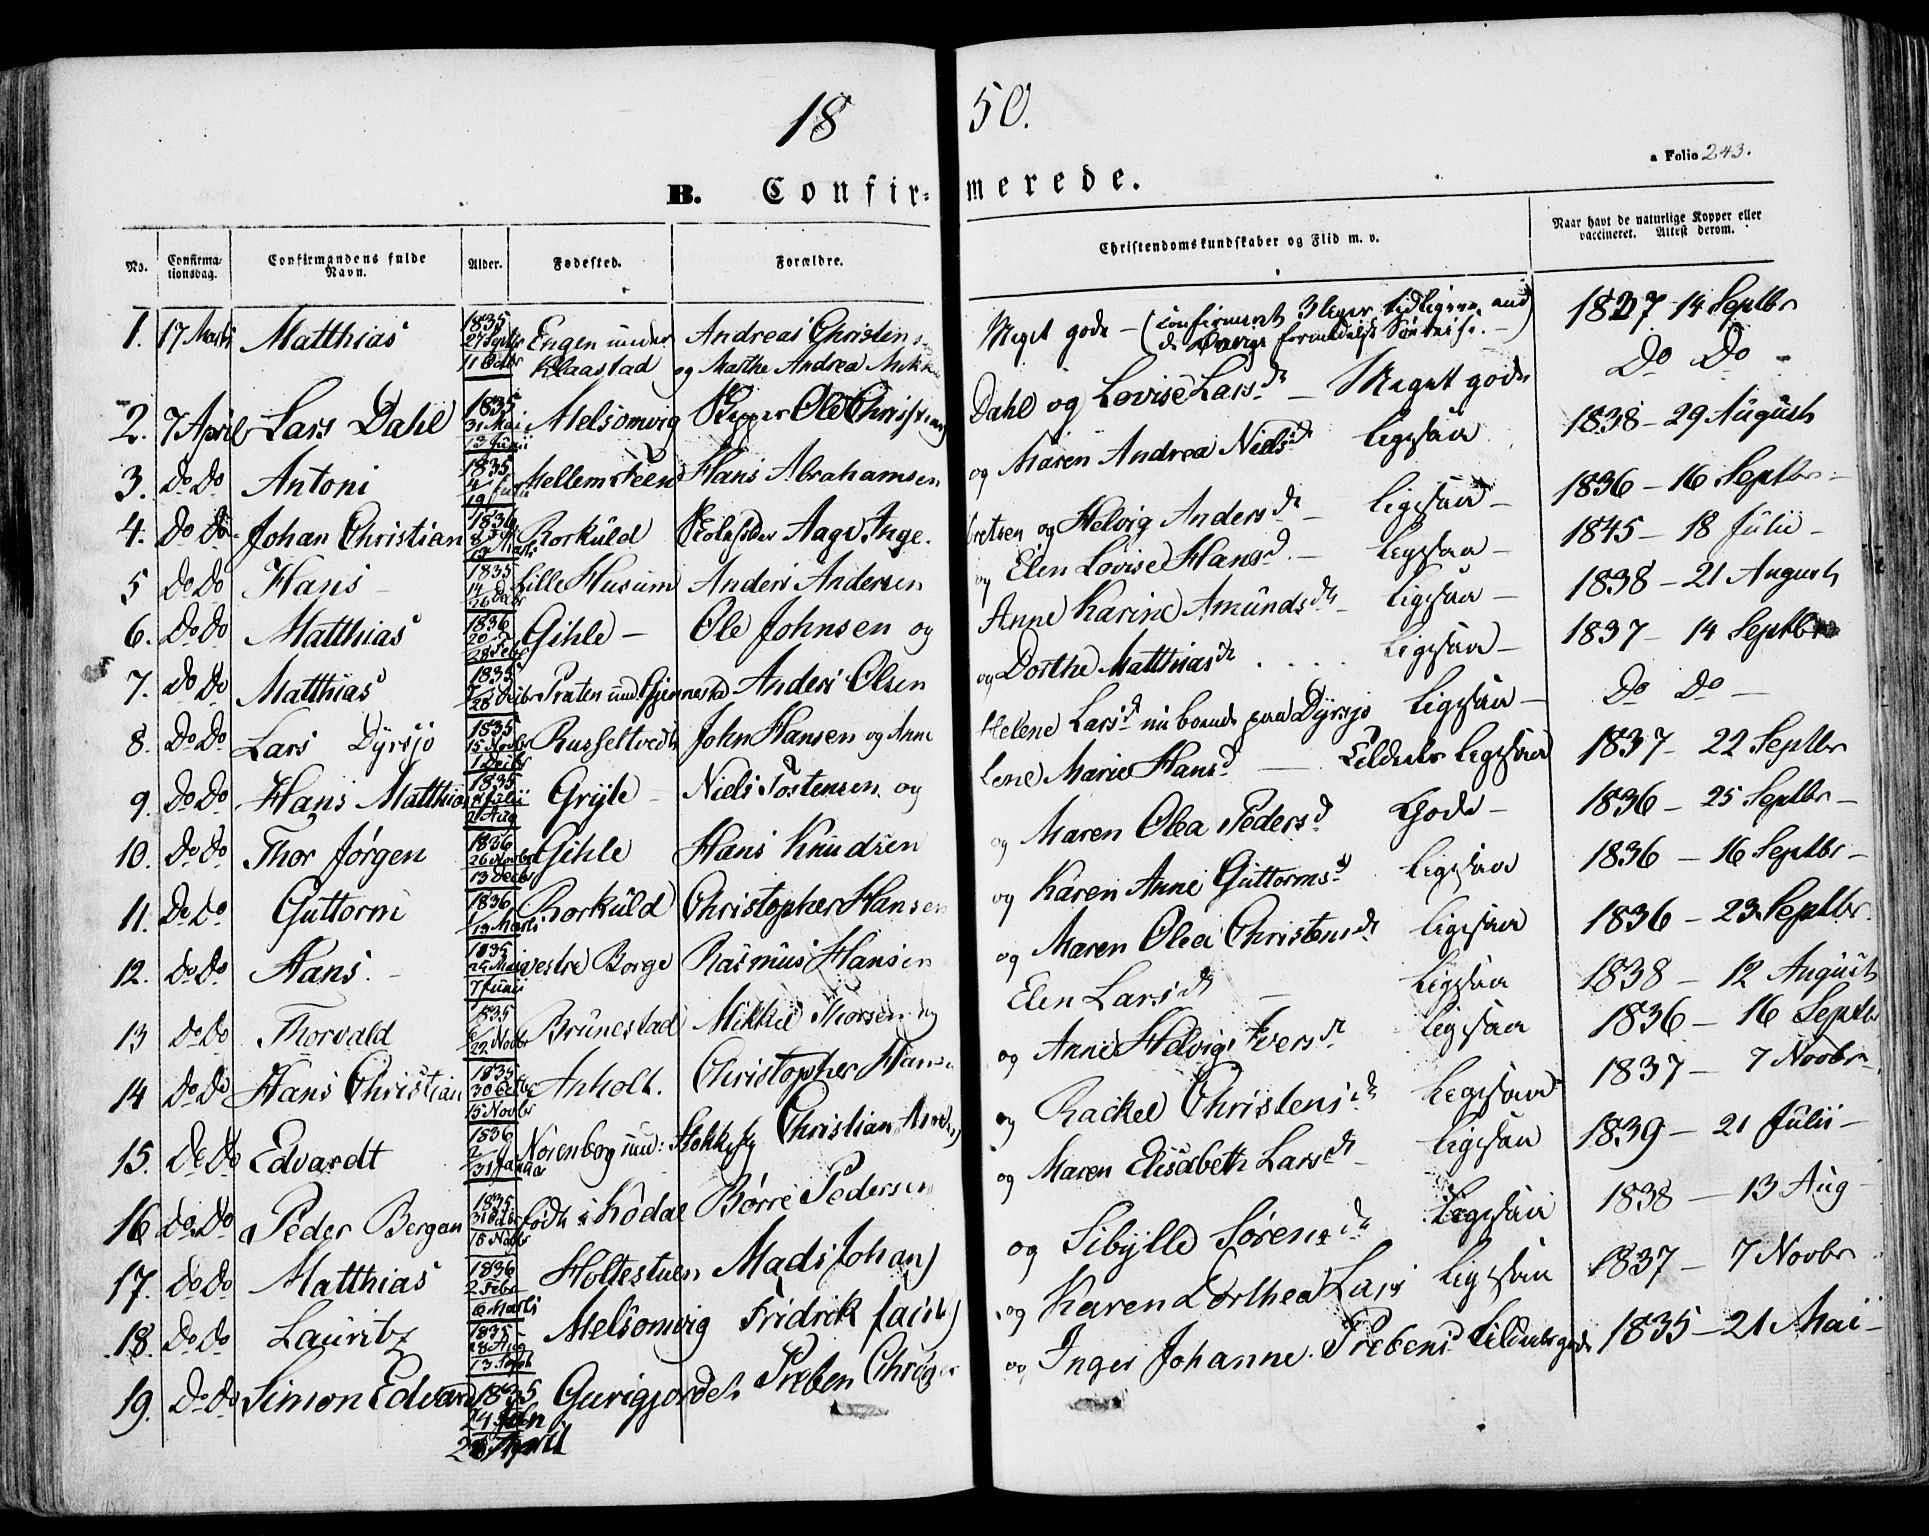 18 50.
a Folio 243.
B. Confir- merede.
No. Confirma-tionsdag. Confirmandens fulde Navn. Alder. Fødested. Forældre. Christendomskundskaber og Flid m. v. Naar havt de naturlige Kopper eller vaccineret. Attest derom.
1. 17 Marts Matthias 1835 27 Septbr 11 Octbr Engen under Klaastad Andreas Christens og Marthe Andrea Meget gode – (confirmeret 3 tidligere end de Øvrige formedelst Søreise. –) 1837 14 Septbr
2. 7 April Lars Dahl 1835 31 Mai 13 Junii Melsomvig Skipper Ole Christens Dahl og Lovise Larsd. – Meget gode Do Do –
3. Do Do Antoni 1835 4 19 Hans Abrahamsen og Maren Andrea Nielsd. ligesaa 1838 – 29 August
4. Do Do Johan Christian 1836 8 13 Marts Rorkuld Aage Inge- bretsen og Helvig Andersd. – ligesaa – 1836 – 16 Septbr –
5 Do Do Hans – 1835 14 26 Decbr Lille Husum Anders Andersen og Elen Lovise Hansd. – ligesaa – 1845 – 18 Julii –
6. Do Do Matthias 1836 20 28 Febr Gihle – Ole Johnsen og Anne Karine Amundsd. – ligesaa – 1838 – 21 August
7. Do Do Matthias 1835 28 Decbr Praten und Gjenneste Anders Olsen og Dorthe Matthiasd. . . . . ligesaa – 1837 – 14 Septbr
8. Do Do Lars Dyrsjo 1835 15 Novbr 1 Decbr Russeltvedt John Hansen og Anne Helene Larsd. nu boende paa Dyrsjo ligesaa – Do Do –
9. Do Do Hans Matthias 1835 Julii 2 Aug Gryte – Niels Tostensen og Lene Marie Hansd. – ligesaa 1837 – 22 Septbr
10. Do Do Thor Jørgen 1836 26 Novbr 13 Decbr Gihle Hans Knudsen og Maren Olea Pedersd. Gode – 1836 – 25 Septbr –
11. Do Do Guttorm 1836 13 Marts Rorkuld Christopher Hansen og Karen Anne Guttormsd. ligesaa 1836 – 16 Septbr –
12. Do Do Hans. – 1835 Mai 7 Junii vestre Borge Rasmus Hansen og Maren Olea Christensd. ligesaa 1836 – 23 Septbr.
13 Do Do Thorvald 1835 22 Novbr Brunestad Mikkel Thorsen og Elen Larsd. – ligesaa 1838 – 12 August
14 Do Do Hans Christian 1835 30 Octbr 15 Novbr Anholt. Christopher Hansen og Anne Helvig Iversd. ligesaa 1836 – 16 Septbr
15. Do Do Edvardt 1836 2 31 Janua Norenberg und: Stokke Christian og Rackel Christensd. ligesaa 1837 – 7 Novbr
16 Do Do Peder Bergan 1835 31 Octbr 15 Novbr født i Kodal Børre Pedersen og Maren Elisabeth Larsd. – ligesaa 1839 – 21 Julii –
17. Do Do Matthias 1836 2 Febr 6 Marts Holtestuen Mads Johan og Sibylle Sørensd. ligesaa 1838 – 13 Aug –
18. Do Do Lauritz 1835 28 Aug 13 Septb Melsomvig Fridrik Jacob og Karen Dorthea Lars ligesaa 1837 – 7 Novbr
19. Do Do Simon Edvard 1835 24 Gurigjordet Preben og Inger Johanne Prebensd. 1835 – 21 Mai –